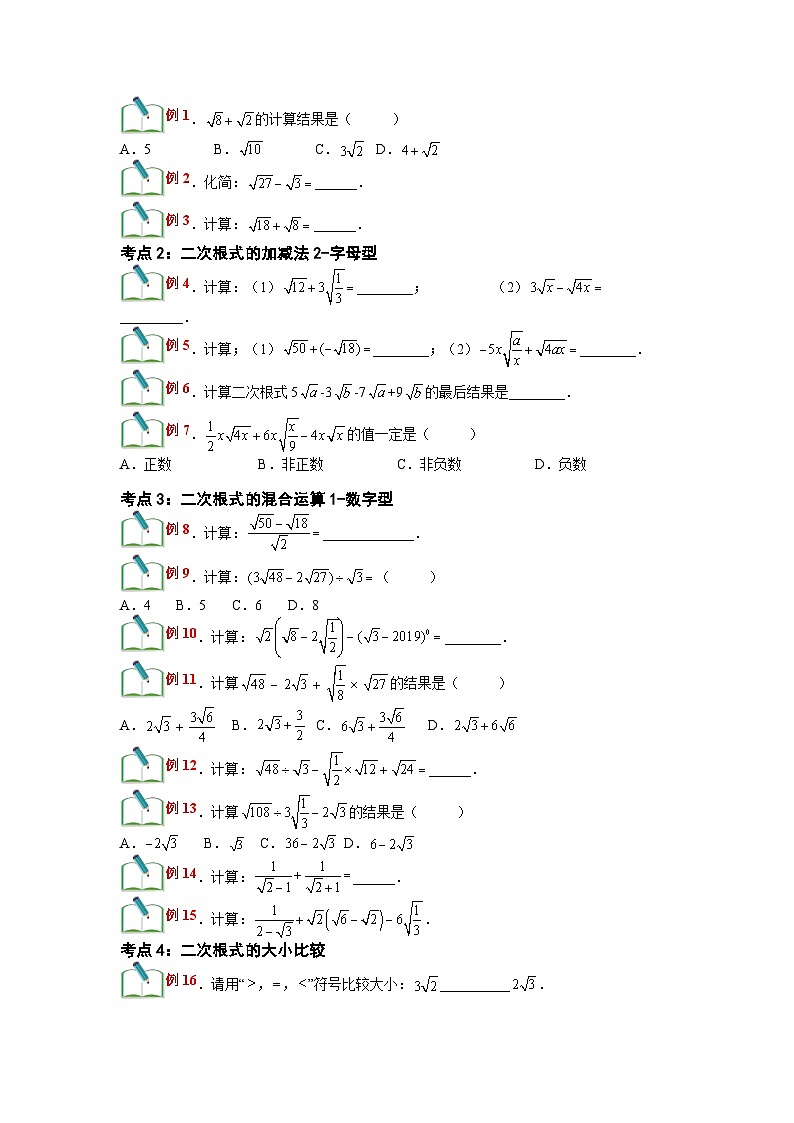 例1．√8+√2的计算结果是（　　）
A．5　B．√10　C．3√2　D．4+√2
例2．化简：√27−√3=______．
例3．计算：√18+√8=______．
考点2：二次根式的加减法2-字母型
例4．计算：（1）√12+3√(1/3)=________；　（2）3√x−√4x=
_________．
例5．计算；（1）√50+(−√18)=________；（2）−5x√(a/x)+√4ax=________．
例6．计算二次根式5√a-3√b-7√a+9√b的最后结果是________．
例7．1/2x√4x+6x√(x/9)−4x√x的值一定是（　　）
A．正数　B．非正数　C．非负数　D．负数
考点3：二次根式的混合运算1-数字型
例8．计算：(√50−√18)/√2=______________．
例9．计算：(3√48−2√27)÷√3=（　　）
A．4　B．5　C．6　D．8
例10．计算：√2(√8−2√(1/2))−(√3−2019)⁰=________．
例11．计算√48−2√3+√(1/8)×√27的结果是（　　）
A．2√3+3√6/4　B．2√3+3/2　C．6√3+3√6/4　D．2√3+6√6
例12．计算：√48÷√3−√(1/2)×√12+√24=______．
例13．计算√108÷3√(1/3)−2√3的结果是（　　）
A．−2√3　B．√3　C．36−2√3　D．6−2√3
例14．计算：1/(√2−1)+1/(√2+1)=______．
例15．计算：1/(2−√3)+√2(√6−√2)−6√(1/3)．
考点4：二次根式的大小比较
例16．请用“>，=，<”符号比较大小：3√2__________2√3．